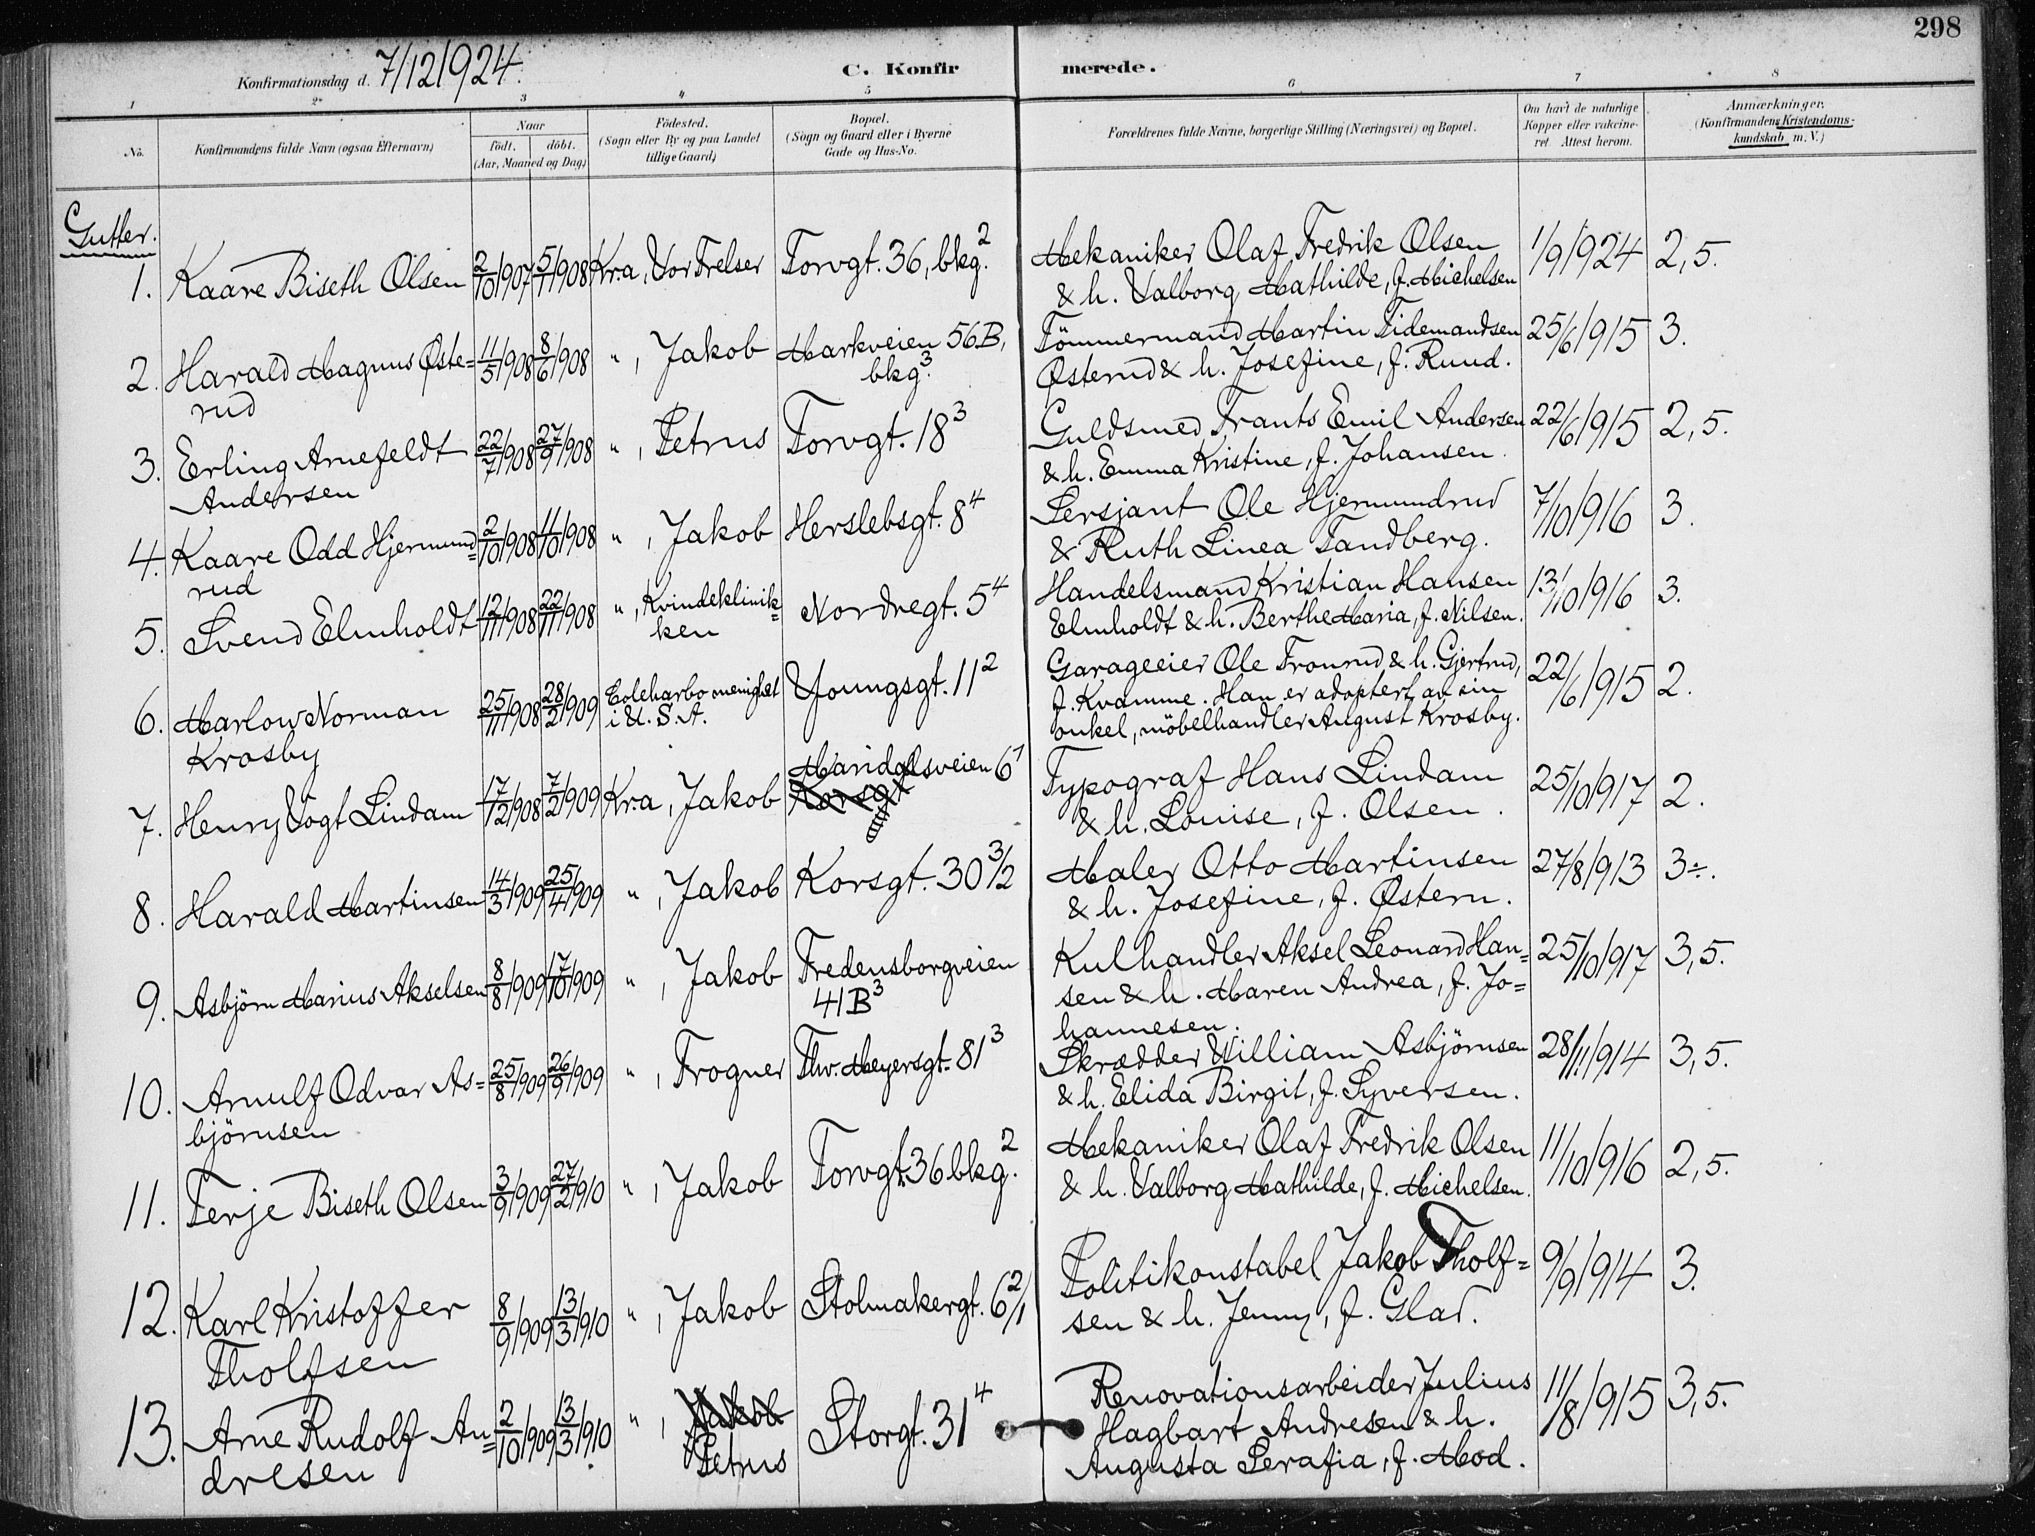 298
Konfirmationsdag d. 7/12 1924.
C. Konfirmerede.
1 2 3 4 5 6 7 8
No. Konfirmandens fulde Navn (ogsaa Efternavn)
Naar
födt. döbt.
(Aar, Maaned og Dag)
Födested.
(Sogn eller By og paa Landet
tillige Gaard)
Bopæl.
(Sogn og Gaard eller i Byerne
Gade og Hus-No.
Forældrenes fulde Navne, borgerlige Stilling (Næringsvei) og Bopæl.
Om havt de naturlige
Kopper eller vakcine-
ret. Attest herom.
Anmærkninger.
(Konfirmandens Kristendoms-
kundskab m. V.)
Gutter.
1. Kaare Biseth Olsen 2/10 1907 5/1 1908 Kr.a, Vor Frelser Torvgt. 36, bkg.2 Mekaniker Olaf Fredrik Olsen 1/9 1924 2,5.
& h. Valborg Mathilde, f. Michelsen
2. Harald Magnus Øste= 11/5 1908 8/6 1908 ", Jakob Markveien 56B, Tömmermand Martin Tidemandsen 25/6 1915 3.
rud bkg.3 Østerud & h. Josefine, f. Ruud.
3. Erling Arnefeldt 22/7 1908 27/9 1908 ", Petrus Torvgt. 18 3 Guldsmed Frants Emil Andersen 22/6 1915 2,5.
Andersen & h. Emma Kristine, f. Johansen.
4. Kaare Odd Hjermund= 2/10 1908 11/10 1908 ", Jakob Herslebsgt. 8 4 Sersjant Ole Hjermundrud 7/10 1916 3.
rud & Ruth Linea Sandberg.
5. Svend Elmholdt 12/11 1908 22/11 1908 ", Kvindeklinik= Nordregt. 5 4 Handelsmand Kristian Hansen 13/10 1916 3.
ken Elmholdt & h. Berthe Maria, f. Nilsen.
6. Marlow Norman 25/11 1908 28/2 1909 menighet Youngsgt. 11 2 Garageeier Ole Tronrud & h. Gjertrud, 22/6 1915 2.
Krosby i U.S.A. f. Kvamme. Han er adoptert av sin
onkel, möbelhandler August Krosby.
7. Henry Vogt Lindam 17/12 1908 7/2 1909 Kr.a, Jakob Maridalsveien 6 1 Typograf Hans Lindam 25/10 1917 2.
Korsgt & h. Louise, f. Olsen.
8. Harald Martinsen 14/3 1909 25/4 1909 ", Jakob Korsgt. 30 3/2 Maler Otto Martinsen 27/8 1913 3÷.
& h. Josefine, f. Østern.
9. Asbjörn Marius Akselsen 8/8 1909 17/10 1909 ", Jakob Fredensborgveien Kulhandler Aksel Leonard Han= 25/10 1917 3,5.
41B 3 sen & h. Maren Andrea, f. Jo=
hannesen.
10. Arnulf Odvar As= 25/8 1909 26/9 1909 ", Frogner Thv. Meyersgt. 81 3 Skrædder William Asbjörnsen 28/11 1914 3,5.
björnsen & h. Elida Birgit, f. Syversen.
11. Terje Biseth Olsen 3/9 1909 27/2 1910 ", Jakob Torvgt. 36 bkg.2 Mekaniker Olaf Fredrik Olsen 11/10 1916 2,5.
& h. Valborg Mathilde, f. Michelsen.
12. Karl Kristoffer 8/9 1909 13/3 1910 ", Jakob Stolmakergt. 6 2/1 Politikonstabel Jakob Tholf= 9/9 1914 3.
Tholfsen sen & h. Jenny, f. Glad.
13. Arne Rudolf An= 2/10 1909 13/3 1910 ", Jakob Storgt. 31 4 Renovationsarbeider Julius 11/8 1915 3,5.
dresen Petrus Hagbart Andresen & h.
Augusta Serafia, f. Mod.